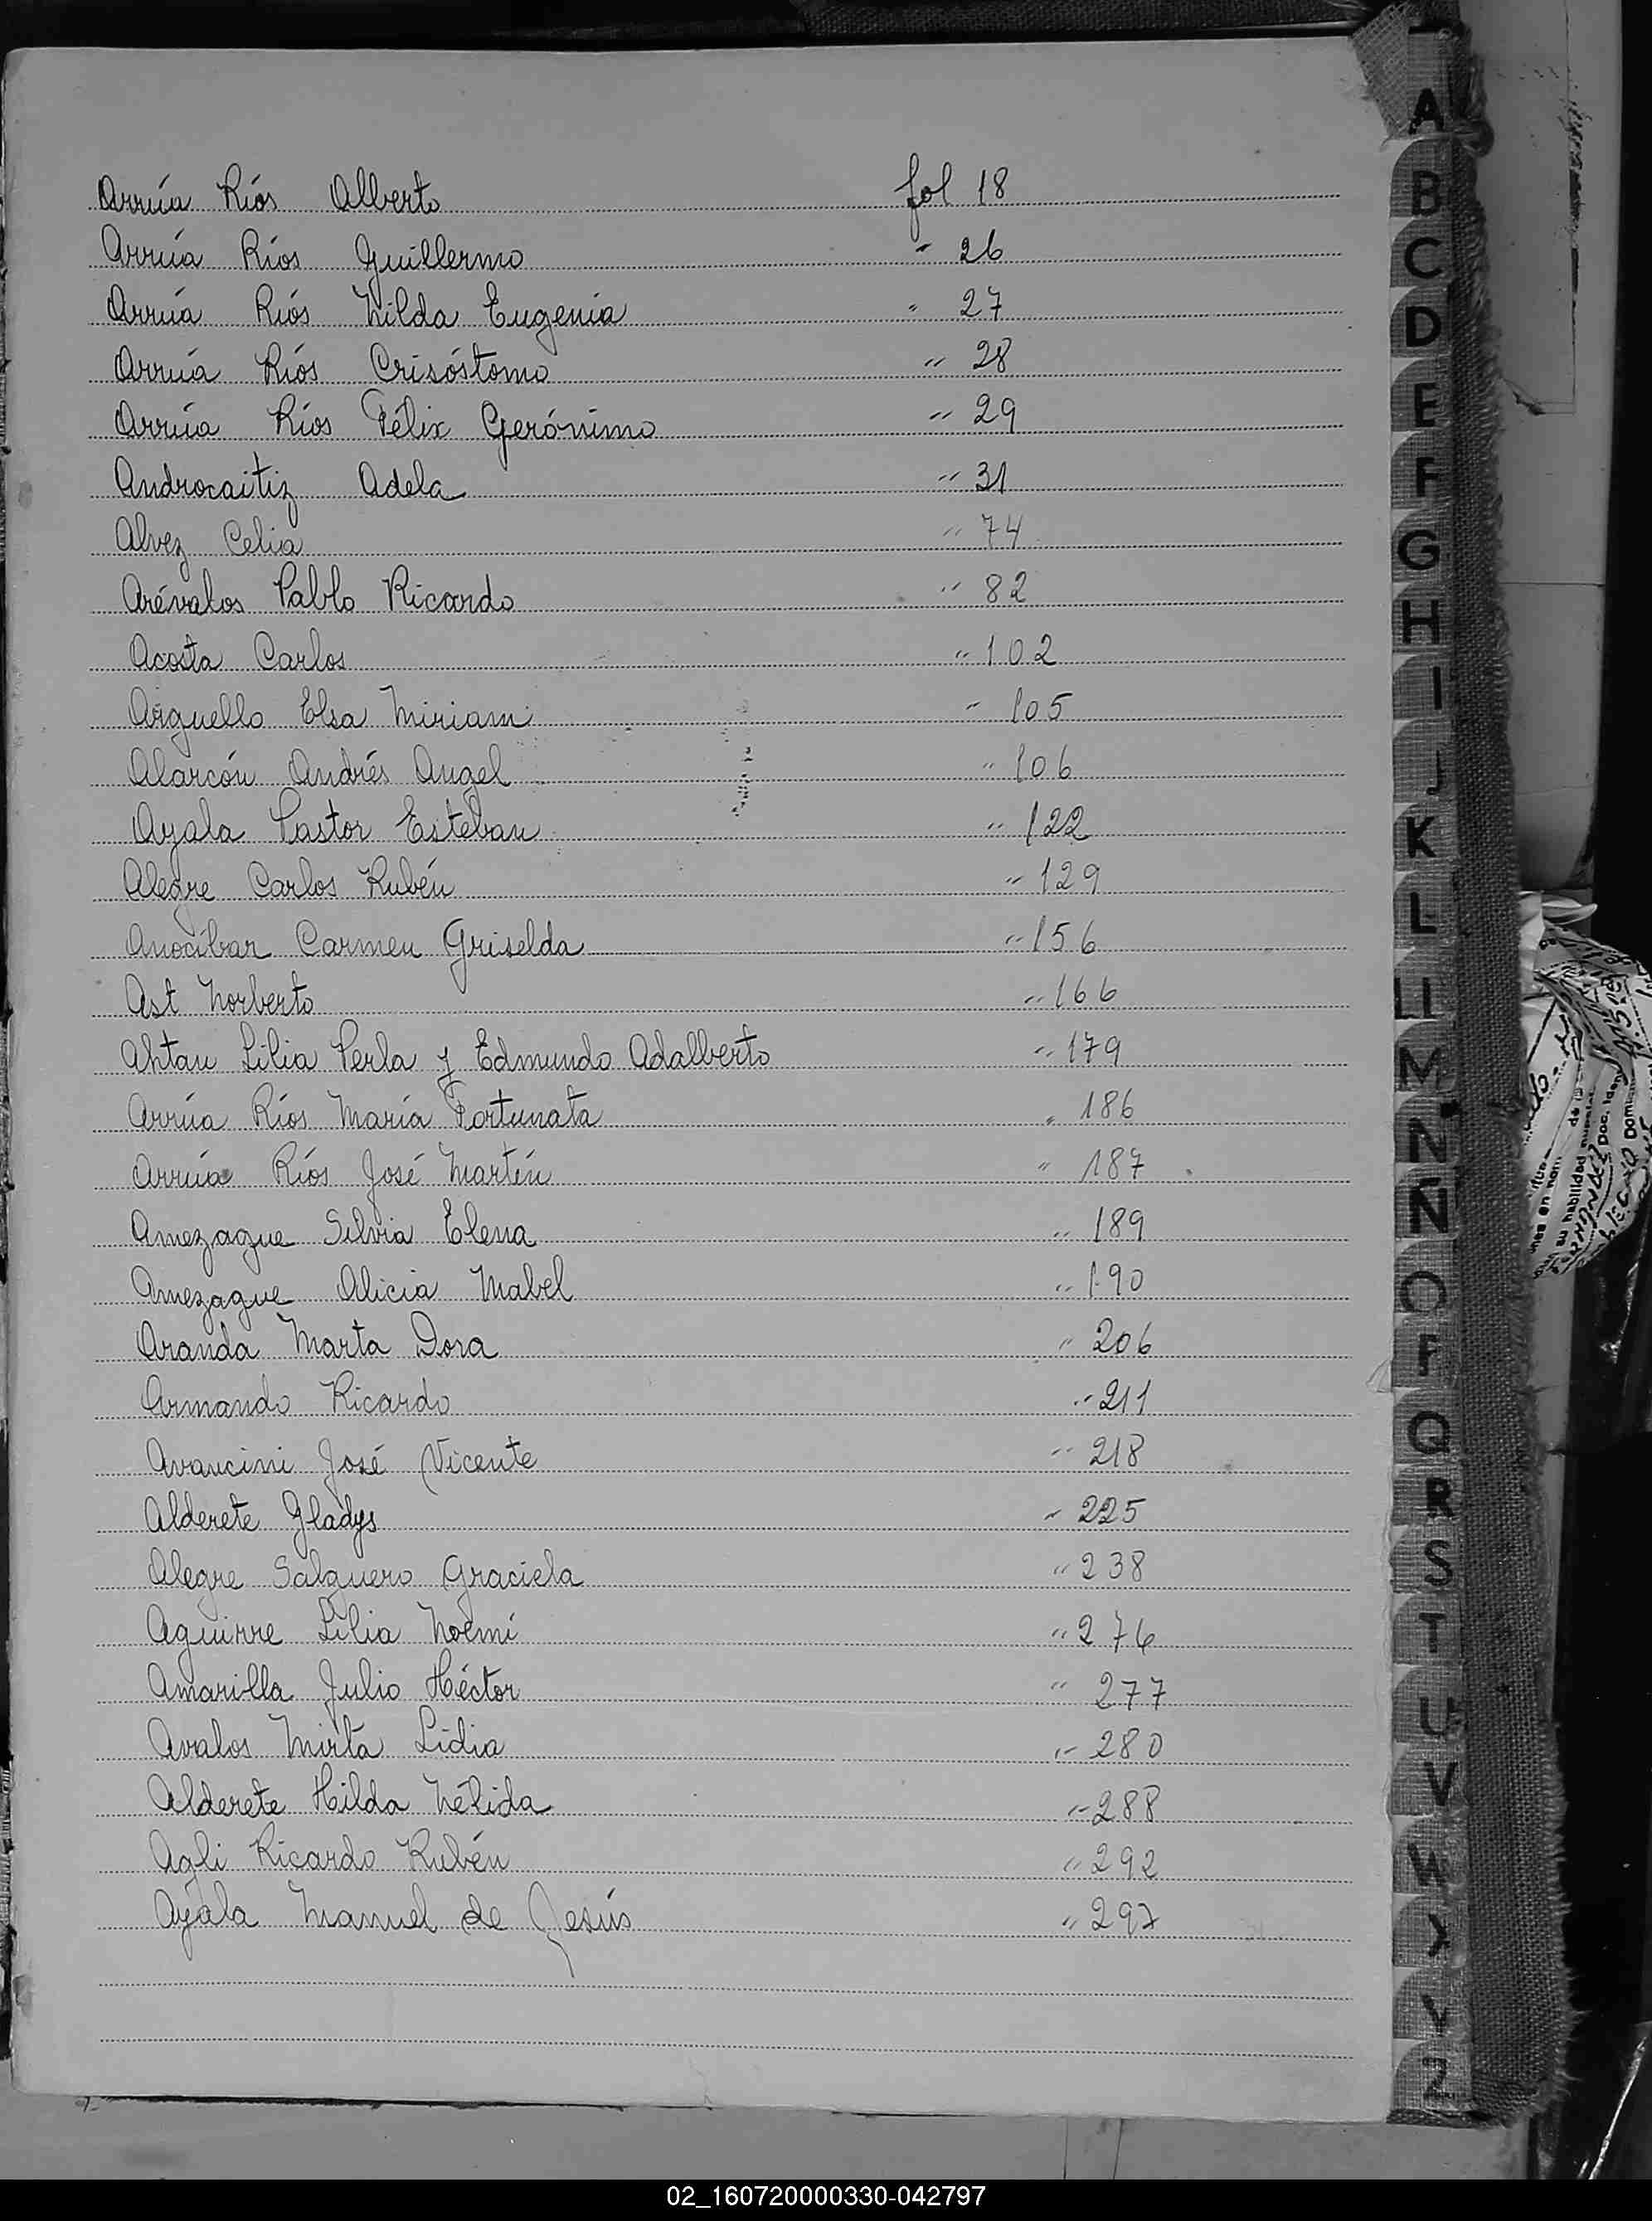 Arrúa Ríos Alberto fol 18
Arrúa Ríos Guillermo " 26
Arrúa Ríos Nilda Eugenia " 27
Arrúa Ríos Crisóstomo " 28
Arrúa Ríos Félix Gerónimo " 29
Androcaitiz Adela " 31
Alvez Celia " 74
Arévalos Pablo Ricardo " 82
Acosta Carlos " 102
Arguello Elsa Miriam " 105
Alarcón Andrés Angel " 106
Ayala Pastor Esteban " 122
Alegre Carlos Rubén " 129
Anocíbar Carmen Griselda " 156
Ast Norberto " 166
Ahtau Lilia Perla y Edmundo Adalberto " 179
Arrúa Ríos María Fortunata " 186
Arrúa Ríos José Martín " 187
Amezague Silvia Elena " 189
Amezague Alicia Mabel " 190
Aranda Marta Dora " 206
Armando Ricardo " 211
Avancini José Vicente " 218
Alderete Gladys " 225
Alegre Salguero Graciela " 238
Aguirre Lilia Noemí " 276
Amarilla Julio Héctor " 277
Avalos Mirta Lidia " 280
Alderete Hilda Nélida " 288
Agli Ricardo Rubén " 292
Ayala Manuel de Jesús " 297
A
B
C
D
E
F
G
H
I
J
K
L
LL
M
N
Ñ
O
P
Q
R
S
T
U
V
W
X
Y
Z
02_160720000330-042797